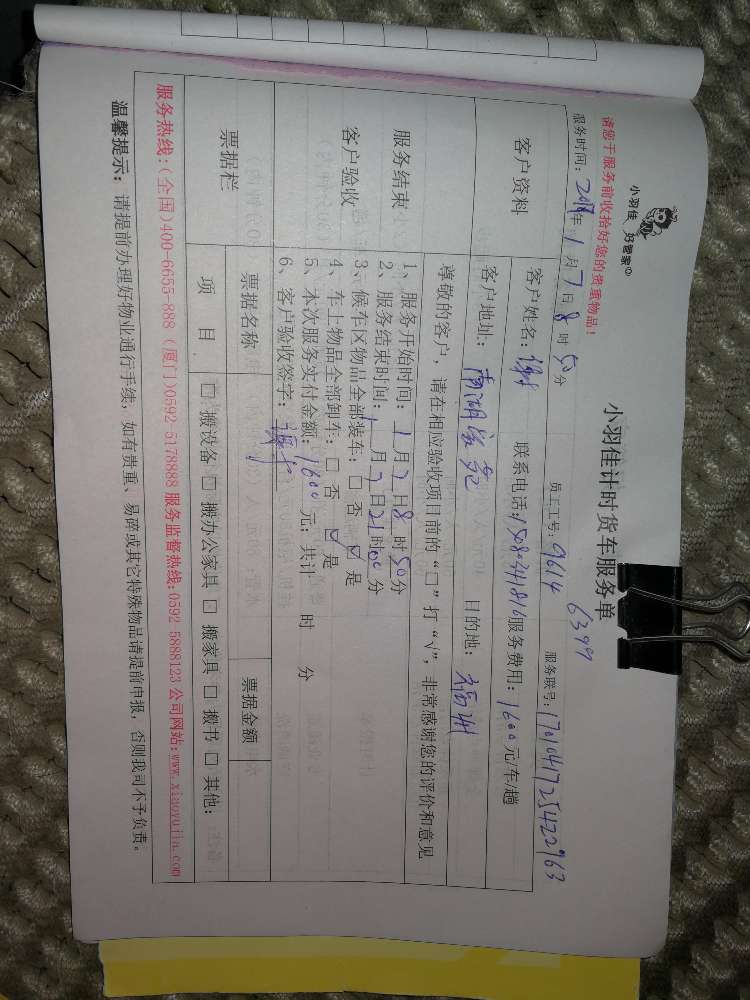 小羽佳 好管家
小羽佳计时货车服务单
请您于服务前收拾好您的贵重物品!
6399
服务时间: 2018年 1月 7日 8时 50分 员工工号: 9614 服务联号: 1701041725422963
客户资料
客户姓名: 联系电话: 服务费用: 1600元/车/趟
客户地址: 南湖 目的地: 福州
尊敬的客户,请在相应验收项目前的“□”打“√”,非常感谢您的评价和意见
服务结束
客户验收
1、服务开始时间: 1月 7日 8时 50分
2、服务结束时间: 1月 7日 21时 00分
3、候车区物品全部装车: □ 否 ☑ 是
4、车上物品全部卸车: □ 否 ☑ 是
5、本次服务实付金额: 1600 元; 共计 时 分
6、客户验收签字:
票据栏
票据名称 票据金额
项 目 □ 搬设备 □ 搬办公家具 □ 搬家具 □ 搬书 □ 其他:
服务热线:(全国)400-6655-888 (厦门)0592-5178888 服务监督热线:0592-5888123 公司网站:www.xiaoyujia.com
温馨提示: 请提前办理好物业通行手续,如有贵重、易碎或其它特殊物品请提前申报,否则我司不予负责。